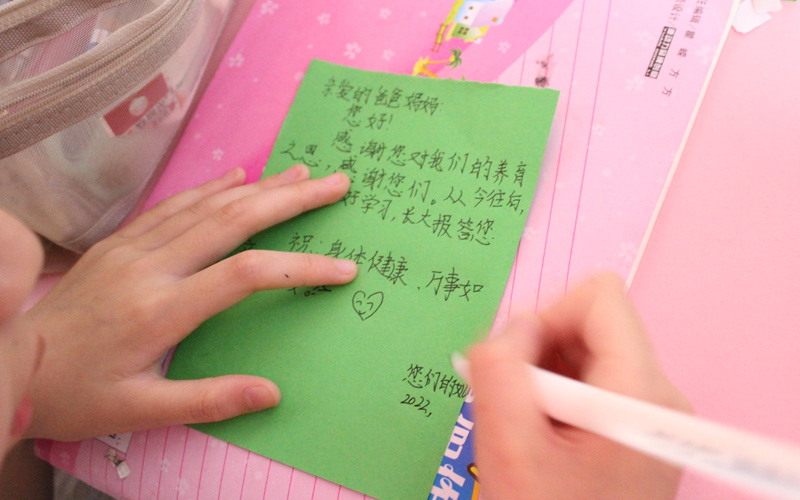 亲爱的爸爸妈妈
您好!
感谢您对我们的养育
之恩,感谢您们。从今往后,
好学习,长大报答您
祝:身体健康、万事如
您们的
2022,